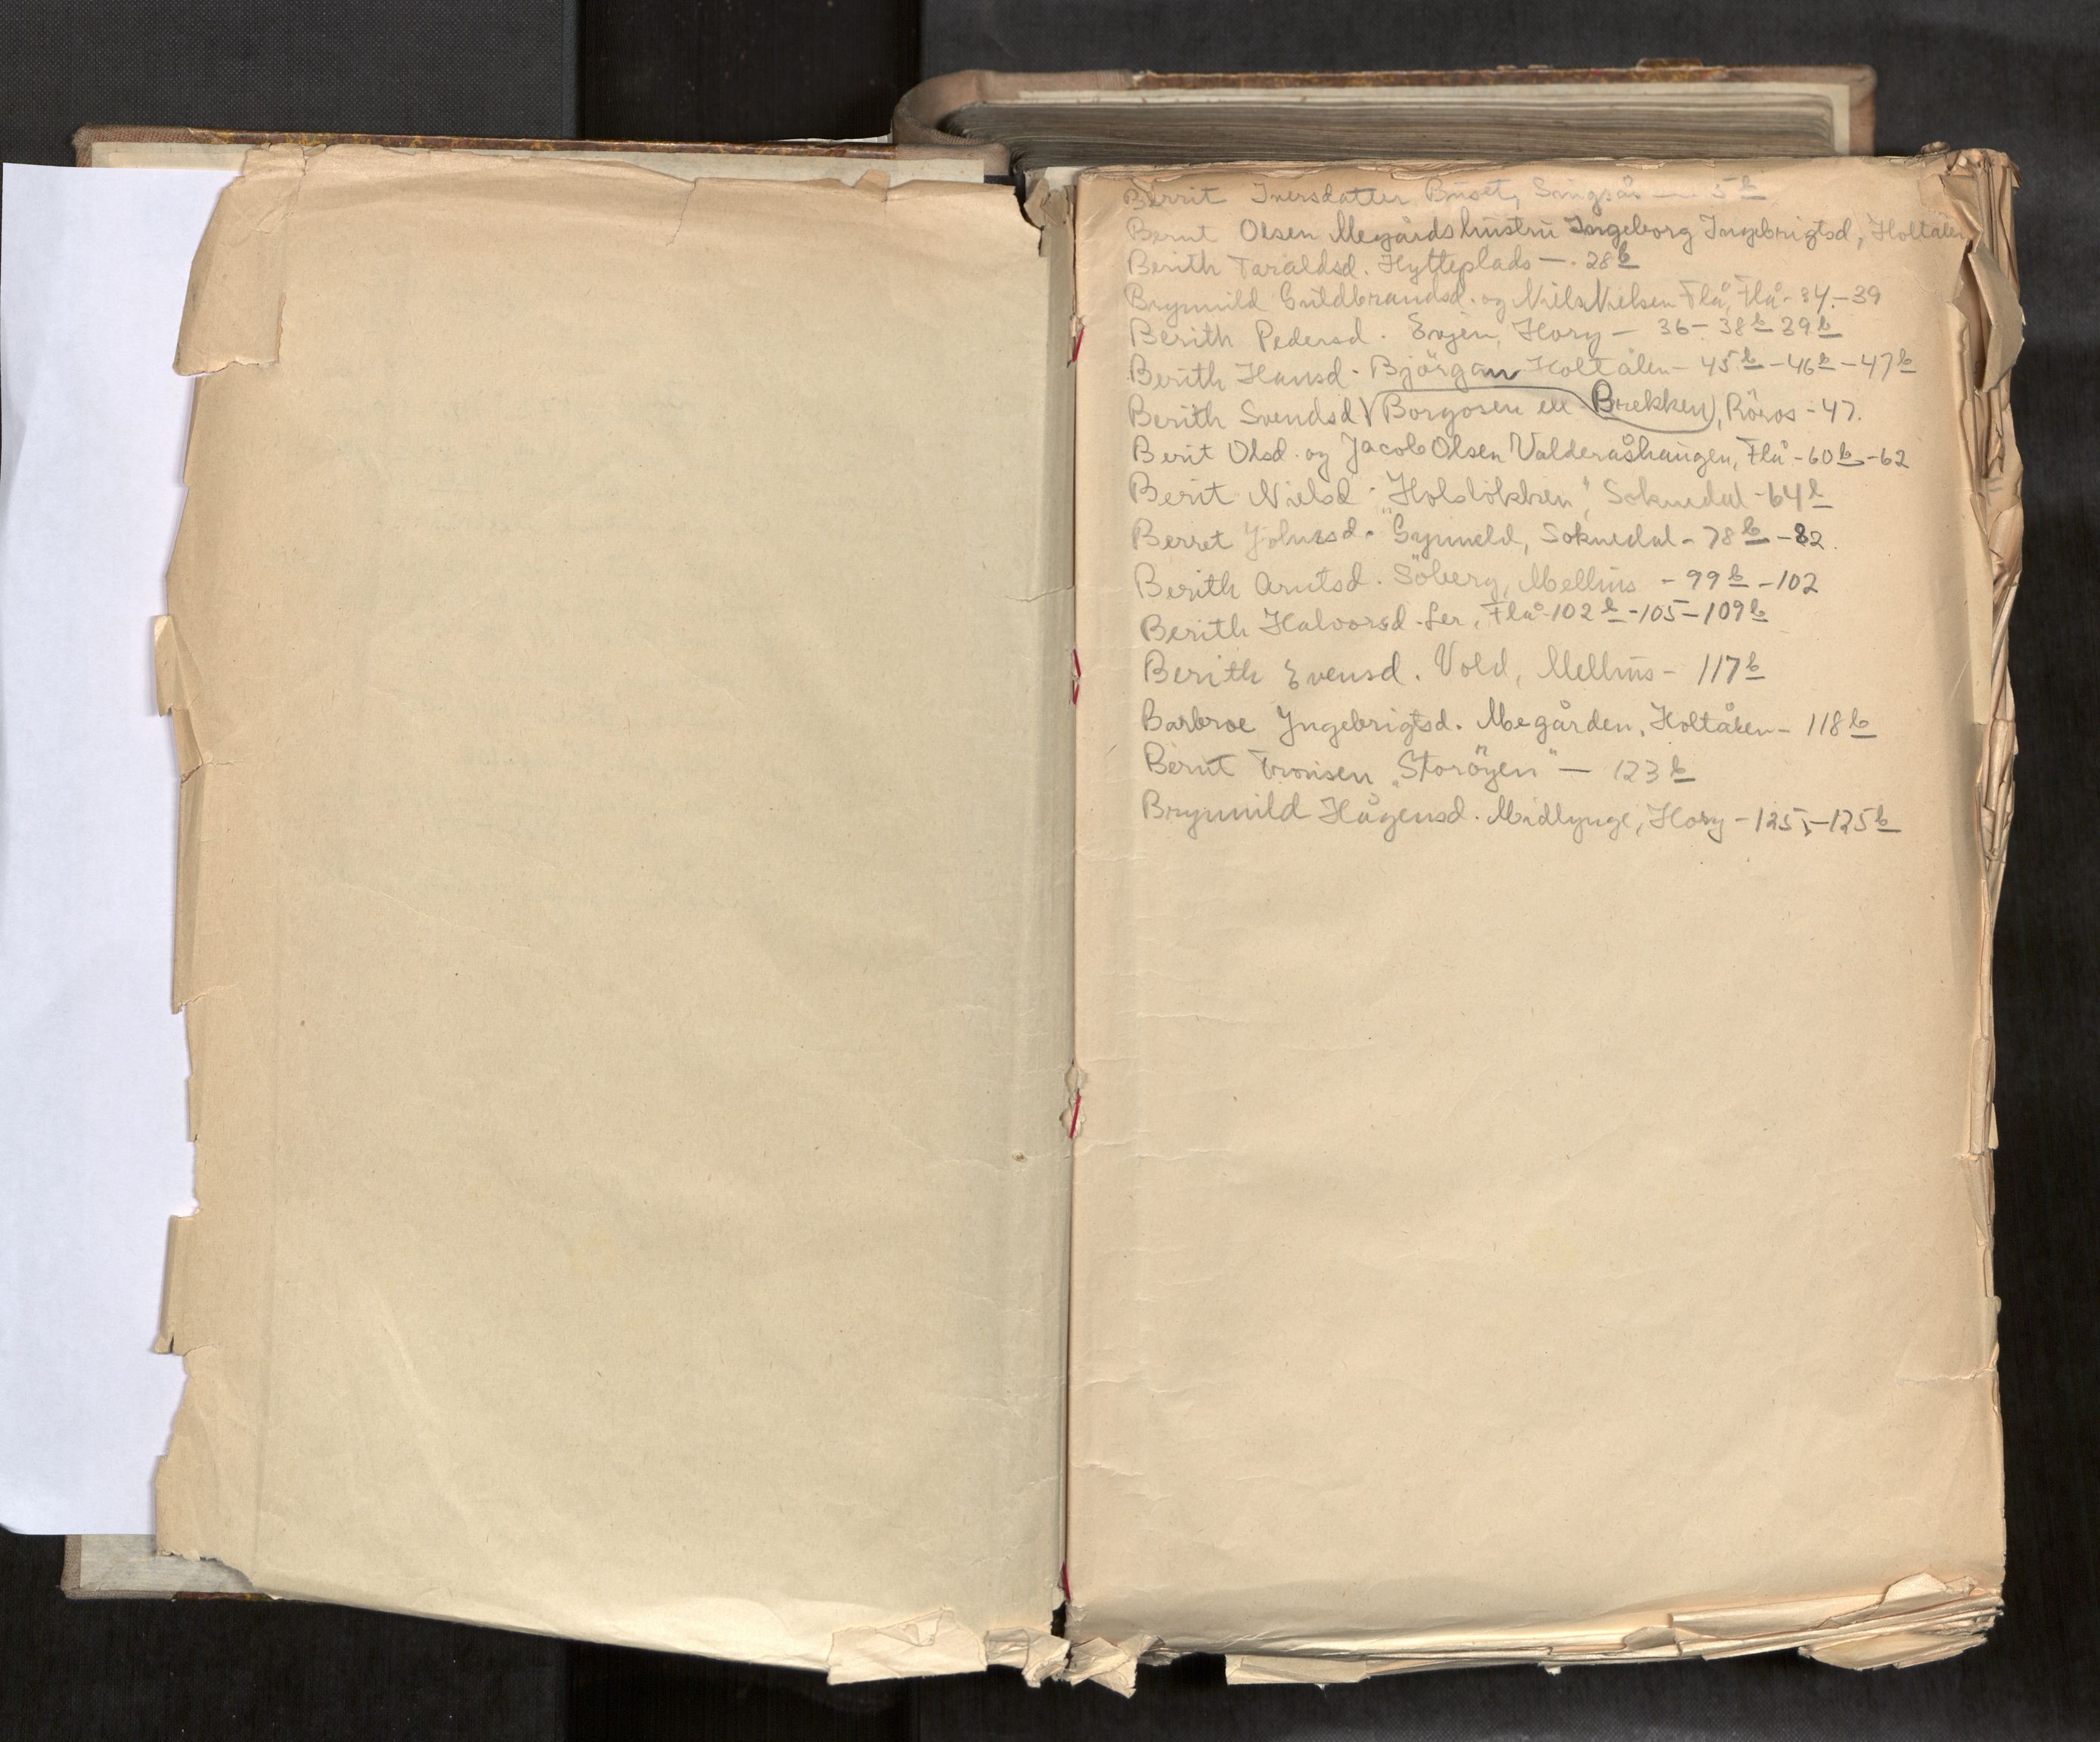 Berrit Iversdatter Buset, Singsås — 5 b
Bernt Olsen Megårds hustru Ingeborg Ingebrigtsd, Holtålen
Berith Taraldsd. Hytteplads — 28 b
Brynnild Guldbrandsd. og Niels Nielsen Flå, Flå - 34 - 39
Berith Pedersd. Evjen, Horg — 36 - 38 b 39 b
Berith Hansd. Björgan Holtålen - 45 b - 46 b - 47 b
Berith Svendsd (Borgosen ell Brekken), Röros - 47.
Berit Olsd. og Jacob Olsen Valderåshaugen, Flå - 60 b - 62
Berit Nielsd. "Holslökken", Soknedal - 64 b
Berret Johnsd. Soknedal - 78 b - 82.
Berith Arntsd. Söberg, Melhus - 99 b - 102
Berith Halvorsd. Ler, Flå - 102 b - 105 - 109 b
Berith Evensd. Vold, Melhus - 117 b
Barbroe Yngebrigtsd. Megården, Holtålen - 118 b
Bernt Tronsen "Storöyen" — 123 b
Brynnild Hågensd. Midlynge, Horg - 125 - 125 b